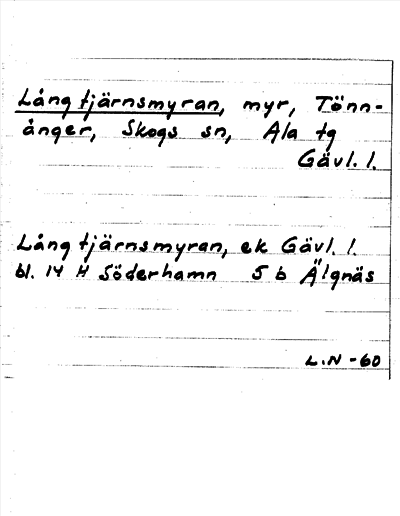 Långtjärnsmyran, myr, Tönn-
ånger, Skogs sn, Ala tg
Gävl. l.
Långtjärnsmyran, ek Gävl. l.
bl. 14 H Söderhamn 5 b Älgnäs
L.N -60